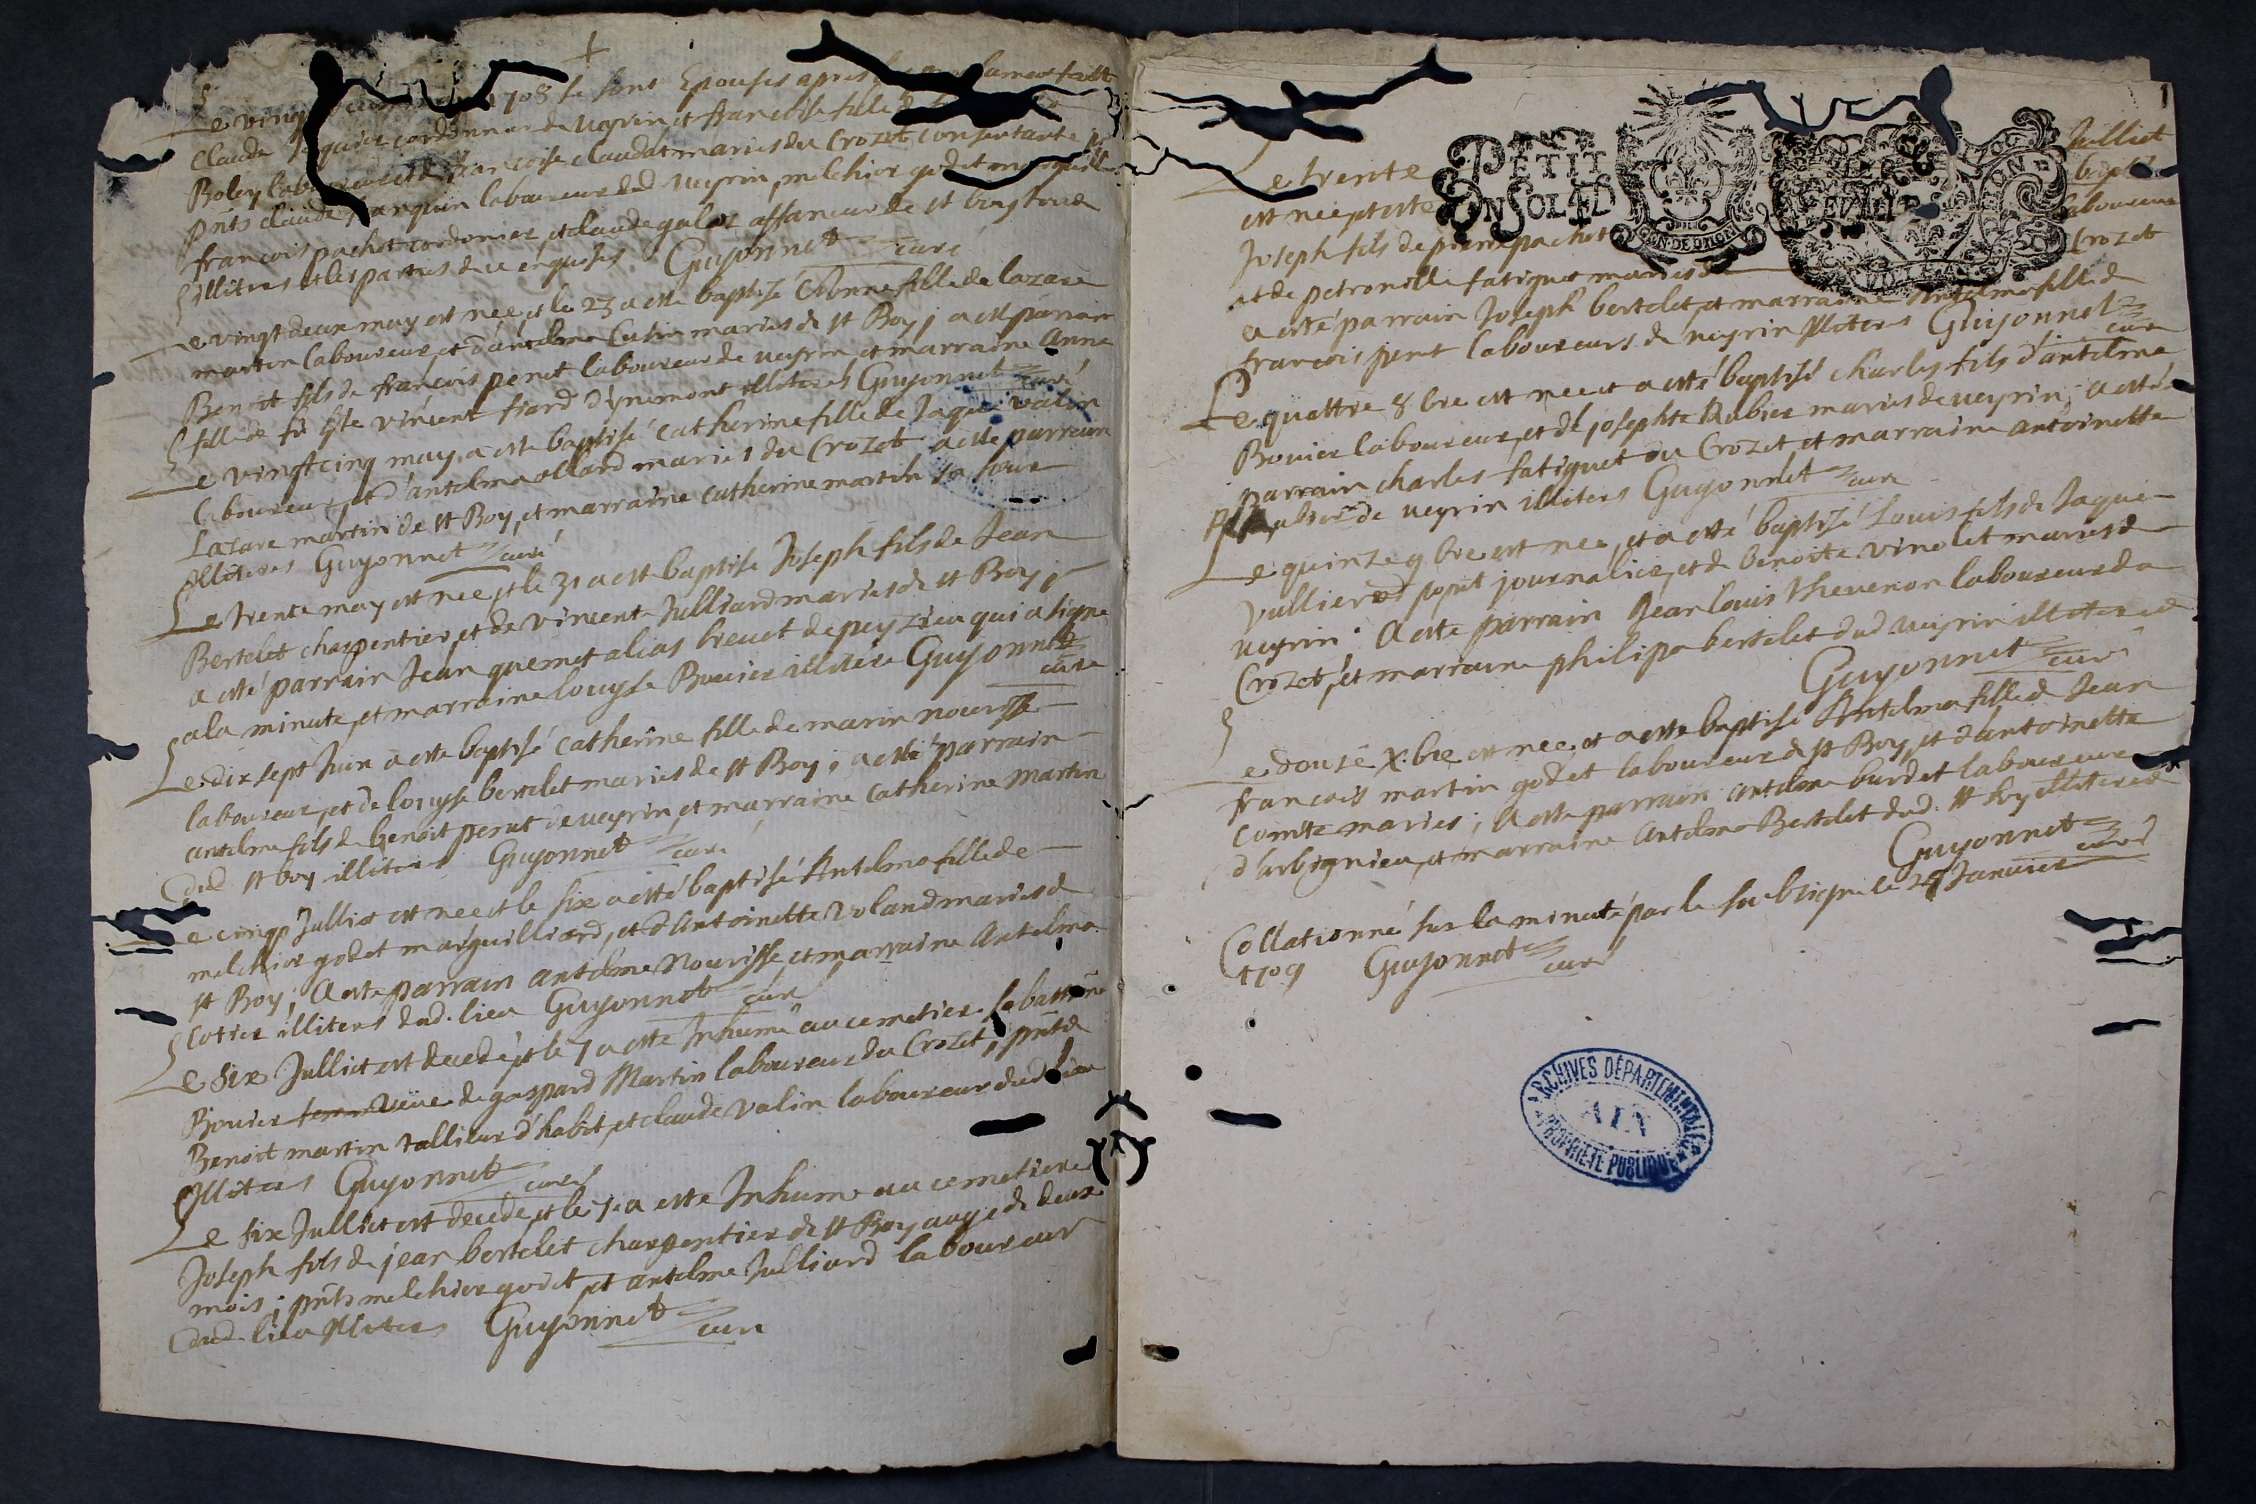 Le vingt 1708 se sont Epousés apres les
Claude Jaquier cordonnier de veyrin et francoise fille de
Boley laboureur et de francoise claudat maries du Crozet consertants
pnts claude Jarquin laboureur dud veyrin, melchior godet marguill
francois pachot cordonier, et claude galat affaneur de st boy tous
illiteres et les parties de ce enquises Guyonnet curé
Le vingt deux may est nee et le 23 a esté baptizé Etienne fille de lazare
martin laboureur, et d'antelme Cutin maries de st Boy; a esté parain
Benoit fils de francois penet laboureur de veyrin, et marraine Anne
fille de fû Vincent fiard d'ynimont illiteres Guyonnet curé
Le vingtcinq may a este baptisé catherine fille de Jaque valin
laboureur, et d'antelme ollard maries du Crozet a esté parrain
Lazare martin de st Boy, et marraine catherine martin sa soeur
illiteres Guyonnet curé
Le trente may est nee, et le 31 a esté baptise Joseph fils de Jean
Bertelet charpentier, et de vincente Julliard maries de st Boy;
a esté parrain Jean quemet alias brevet de peyzieu qui a signe
a la minute, et marraine louyse Bouvier illitere Guyonnet
curé
Le dix sept Juin a este baptisé catherine fille de marin nourisse
laboureur, et de louyse bertelet maries de st Boy; a esté parrain
antelme fils de benoit penet de veyrin et marraine catherine martin
dud st boy illiteres Guyonnet curé
Le cinqe Julliet est nee et le six a esté baptisé Antelme fille de
melchior godet marguilliard, et d'Antoinette Voland maries de
st Boy; a este parrain antelme Nourisse, et marraine Antelme
Cotier illiteres dud. lieu Guyonnet curé
Le six Julliet est decedé, et le 7 a este Inhumé au cemetiere
Bouvier femme veüe de gaspard Martin laboureur du Crozet; pnts
Benoit martin tallieur d'habit, et claude Valin laboureur dud lieu
Illiteres Guyonnet curé
Le six Julliet est decede, et le 7 a este Inhume au cemetiere
Joseph fils de jean bertelet charpentier de st Boy auge de deux
mois; pnts melchior godet et antelme Julliard laboureur
dud. lieu illiteres Guyonnet curé
1
PETIT
GEN. DE DIION
Le trente Julliet
est nee et este bapt
Joseph fils de pierre pachot laboureur
et de petronille fatiguet maries du Crozet
a esté parrain Joseph bertelet, et marraine Antelme fille de
francois penet laboureurs de veyrin illiteres Guyonnet
curé
Le quattre 8bre est nee et a esté baptisé charles fils d'antelme
Bouvier laboureur, et de josephte maries de veyrin; a esté
parrain charles fatiguet du Crozet, et marraine antoinette
de veyrin illiteres Guyonnet curé
Le quinze 9bre est nee, et a esté baptizé Louis fils de Jaque
Vullierod journalier, et de benoite vinolet maries de
veyrin; A este parrain Jean louis thevenon laboureur du
Crozet, et marraine philipa bertelet dud veyrin illiteres
Guyonnet curé
Le douse Xbre est nee, et a esté baptisé Antelme fille de Jean
francois martin godet laboureur de st Boy, et d'antoinette
comte maries; A este parrain antelme burdet laboureur
d'arbignieu, et marraine antelme Bertelet dud. st boy illiteres
Guyonnet curé
Collationné sur la minute par le soubsigne le Janvier
1709 Guyonnet curé
ARCHIVES DÉPARTEMENTALES
AIN
PROPRIÉTÉ PUBLIQUE